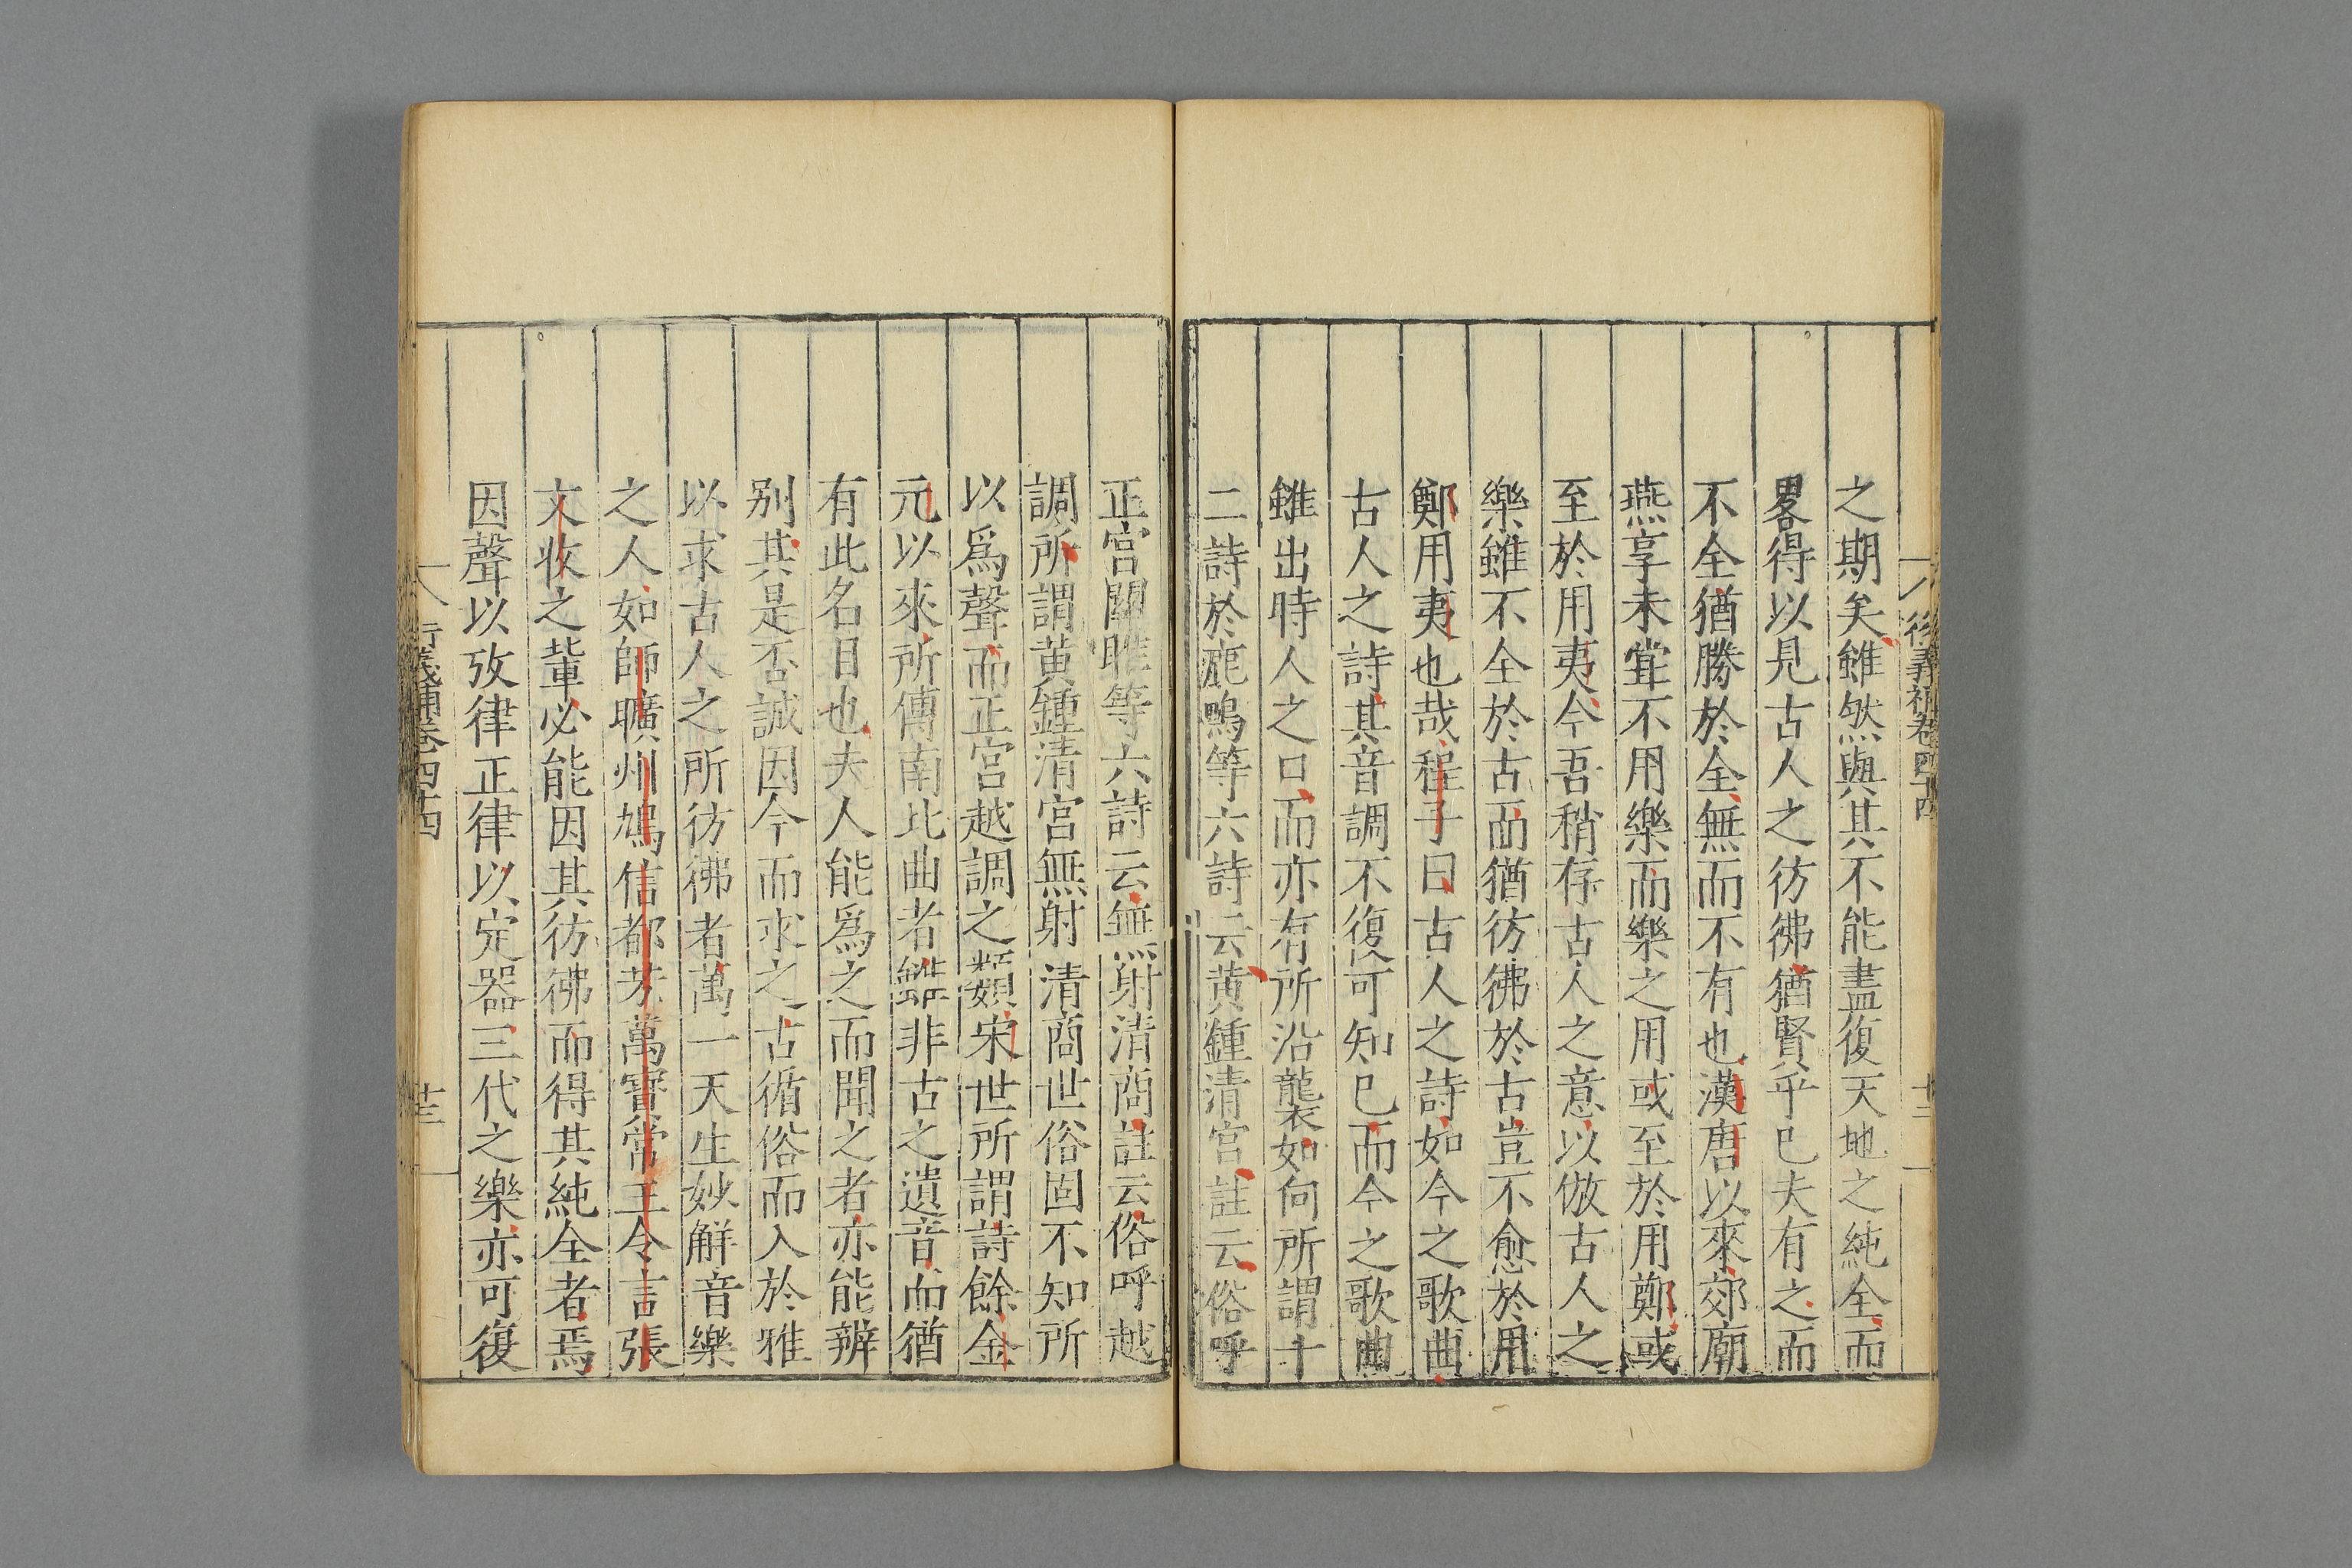 衍義補卷四十四
廿二
之期矣雖然與其不能盡復天地之純全而
畧得以見古人之彷彿猶賢乎已夫有之而
不全猶勝於全無而不有也漢唐以來郊廟
燕享未甞不用樂而樂之用或至於用鄭或
至於用夷今吾稍存古人之意以倣古人之
樂雖不全於古而猶彷彿於古豈不愈於用
鄭用夷也哉程子曰古人之詩如今之歌曲
古人之詩其音調不復可知已而今之歌曲
雖出時人之口而亦有所沿襲如向所謂十
二詩於鹿鳴等六詩云黃鍾清宮註云俗呼
正宮關雎等六詩云無射清商註云俗呼越
調所謂黃鍾清宮無射清商世俗固不知所
以爲聲而正宮越調之類宋世所謂詩餘金
元以來所傳南北曲者雖非古之遺音而猶
有此名目也夫人能爲之而聞之者亦能辨
别其是否誠因今而求之古循俗而入於雅
以求古人之所彷彿者萬一天生妙解音樂
之人如師曠州鳩信都芳萬寶常王令言張
文收之輩必能因其彷彿而得其純全者焉
因聲以攷律正律以定器三代之樂亦可復
衍義補卷四十四
廿三